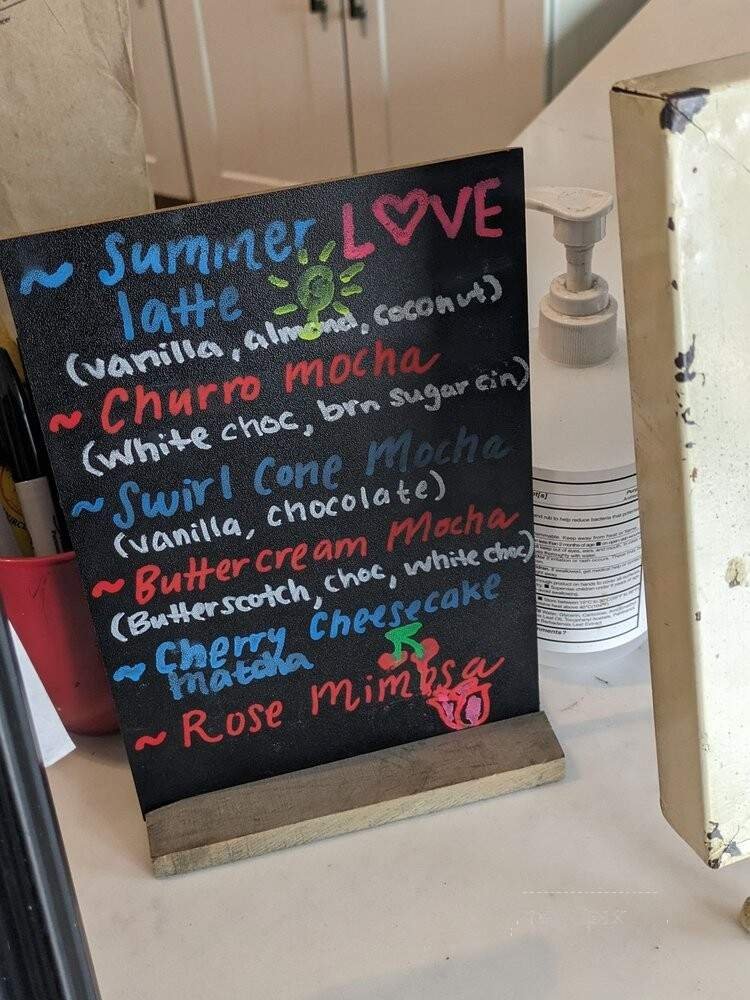 ~ Summer LOVE
latte
(vanilla, almond, coconut)
~ Churro mocha
(white choc, brn sugar cin)
~ Swirl Cone Mocha
(vanilla, chocolate)
~ Buttercream Mocha
(Butterscotch, choc, white choc)
~ Cherry Cheesecake
Matcha
~ Rose Mimosa